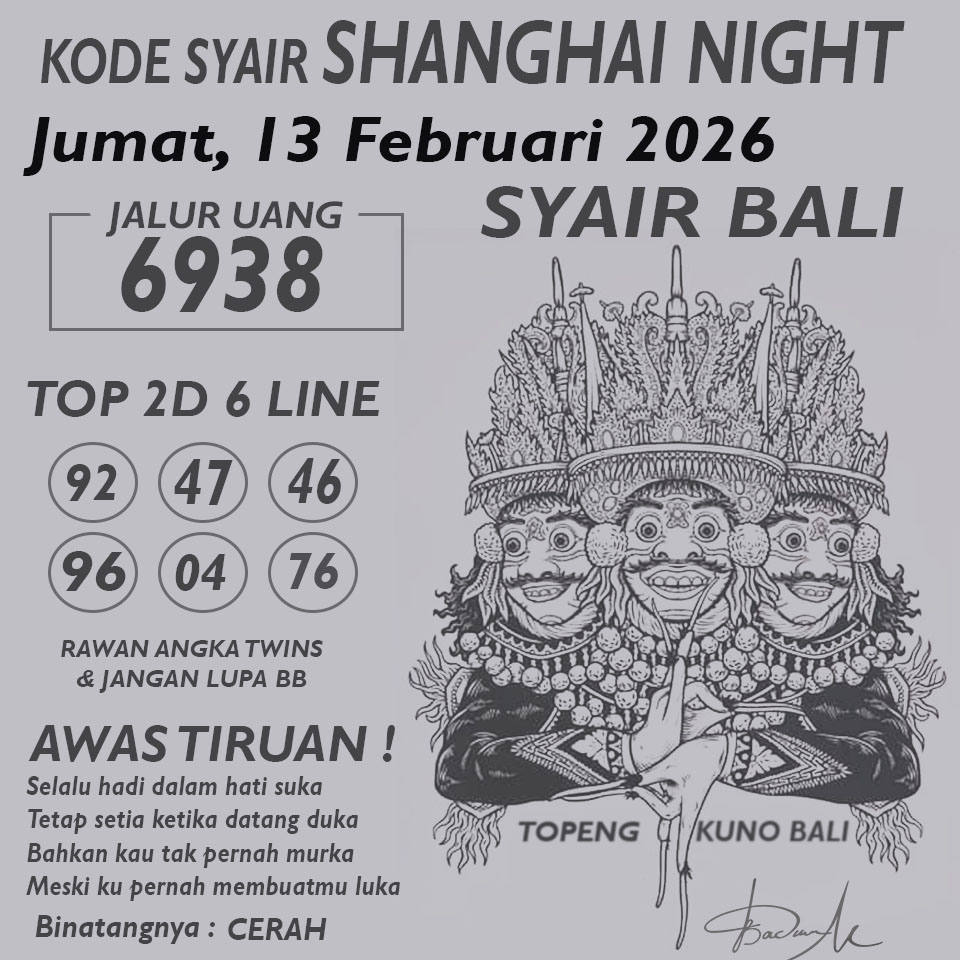 KODE SYAIR SHANGHAI NIGHT
Jumat, 13 Februari 2026
SYAIR BALI
JALUR UANG
6938
TOP 2D 6 LINE
92 47 46
96 04 76
RAWAN ANGKA TWINS
& JANGAN LUPA BB
AWAS TIRUAN !
Selalu hadi dalam hati suka
Tetap setia ketika datang duka
Bahkan kau tak pernah murka
Meski ku pernah membuatmu luka
Binatangnya : CERAH
TOPENG KUNO BALI